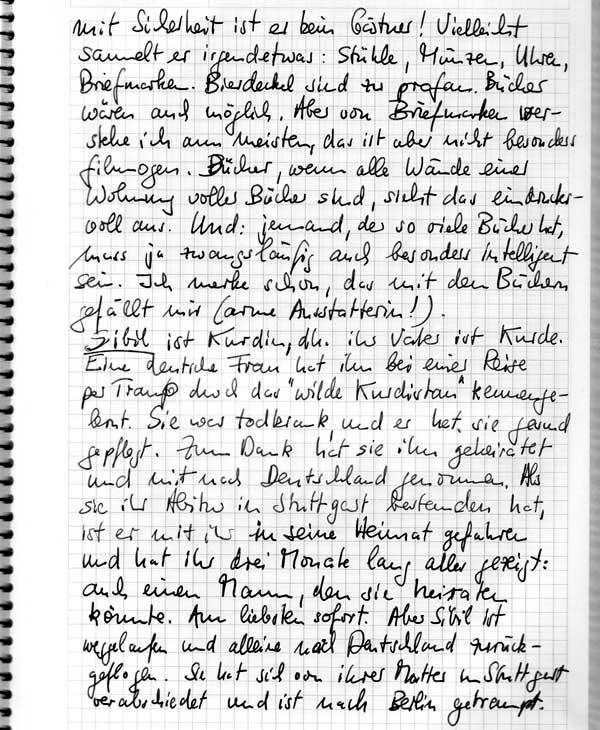 mit Sicherheit ist er beim Gärtner! Vielleicht
sammelt er irgendetwas: Stühle, Münzen, Uhren,
Briefmarken. Bierdeckel sind zu profan. Bücher
wären auch möglich. Aber von Briefmarken ver-
stehe ich am meisten, das ist aber nicht besonders
filmogen. Bücher, wenn alle Wände einer
Wohnung voller Bücher sind, sieht das eindrucks-
voll aus. Und: jemand, der so viele Bücher hat,
muss ja zwangsläufig auch besonders intelligent
sein. Ich merke schon, das mit den Büchern
gefällt mir (arme Ausstatterin!).
Sibil ist Kurdin, dh. ihr Vater ist Kurde.
Eine deutsche Frau hat ihn bei einer Reise
per Tramp durch das "wilde Kurdistan" kennenge-
lernt. Sie war todkrank und er hat sie gesund
gepflegt. Zum Dank hat sie ihn geheiratet
und mit nach Deutschland genommen. Als
sie ihr Abitur in Stuttgart bestanden hat,
ist er mit ihr in seine Heimat gefahren
und hat ihr drei Monate lang alles gezeigt:
auch einen Mann, den sie heiraten
könnte. Am liebsten sofort. Aber Sibil ist
weggelaufen und alleine nach Deutschland zurück-
geflogen. Sie hat sich von ihrer Mutter in Stuttgart
verabschiedet und ist nach Berlin getrampt.